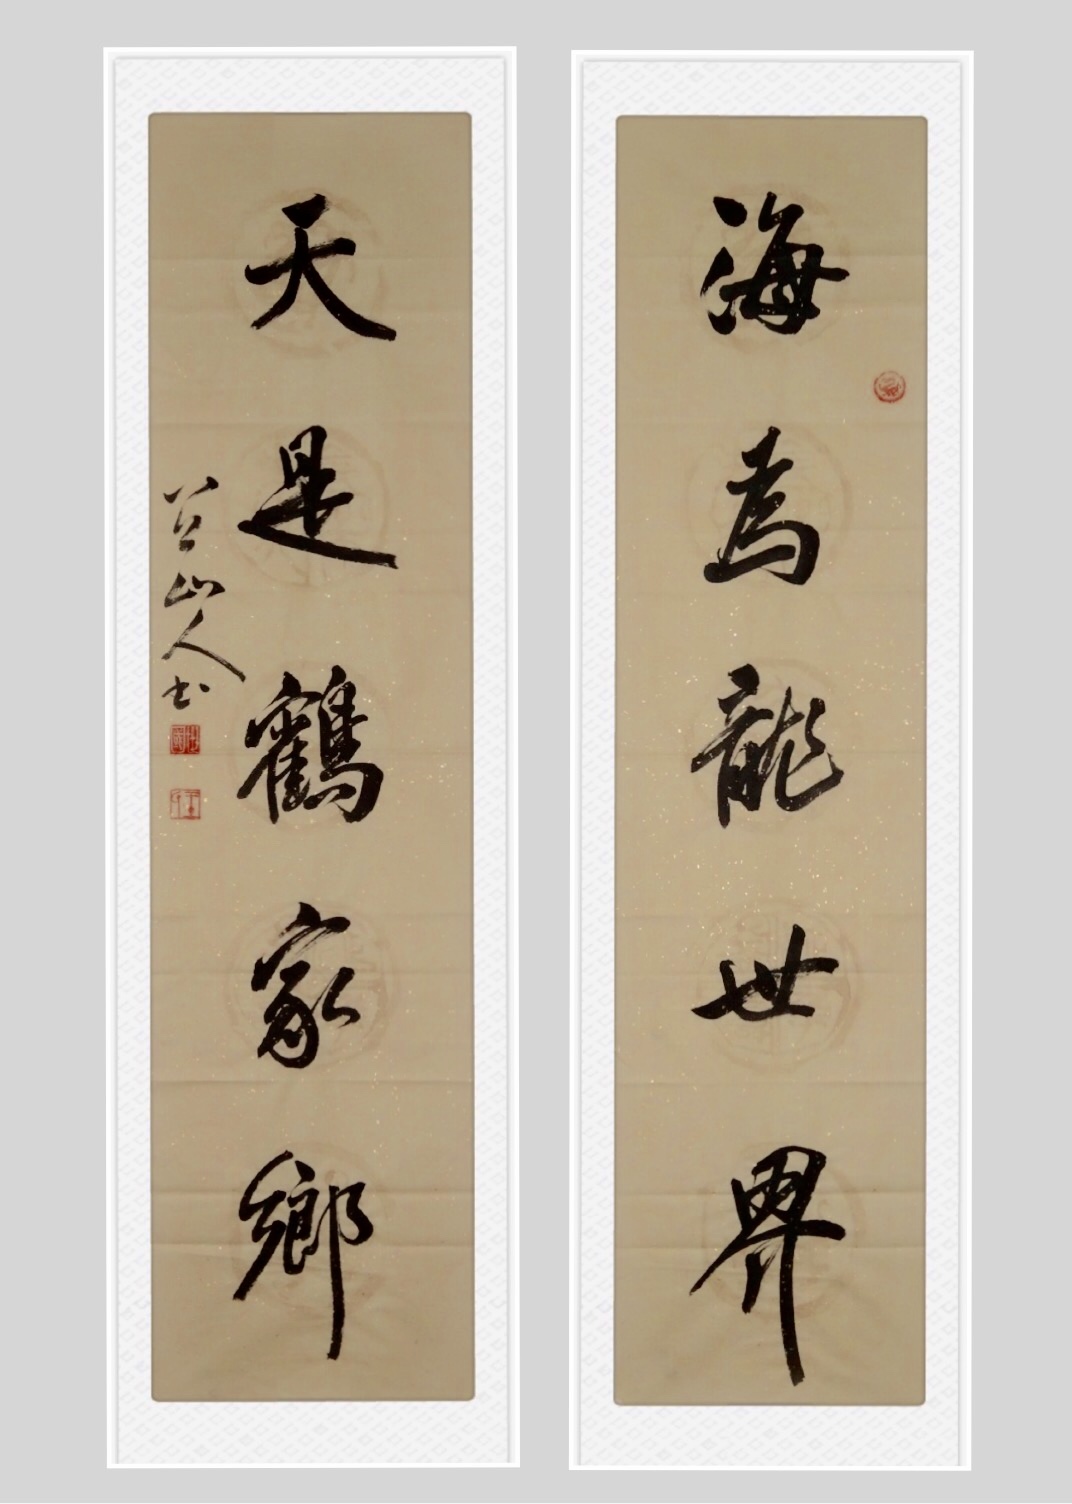 海為龍世界
天是鶴家鄉
山人书